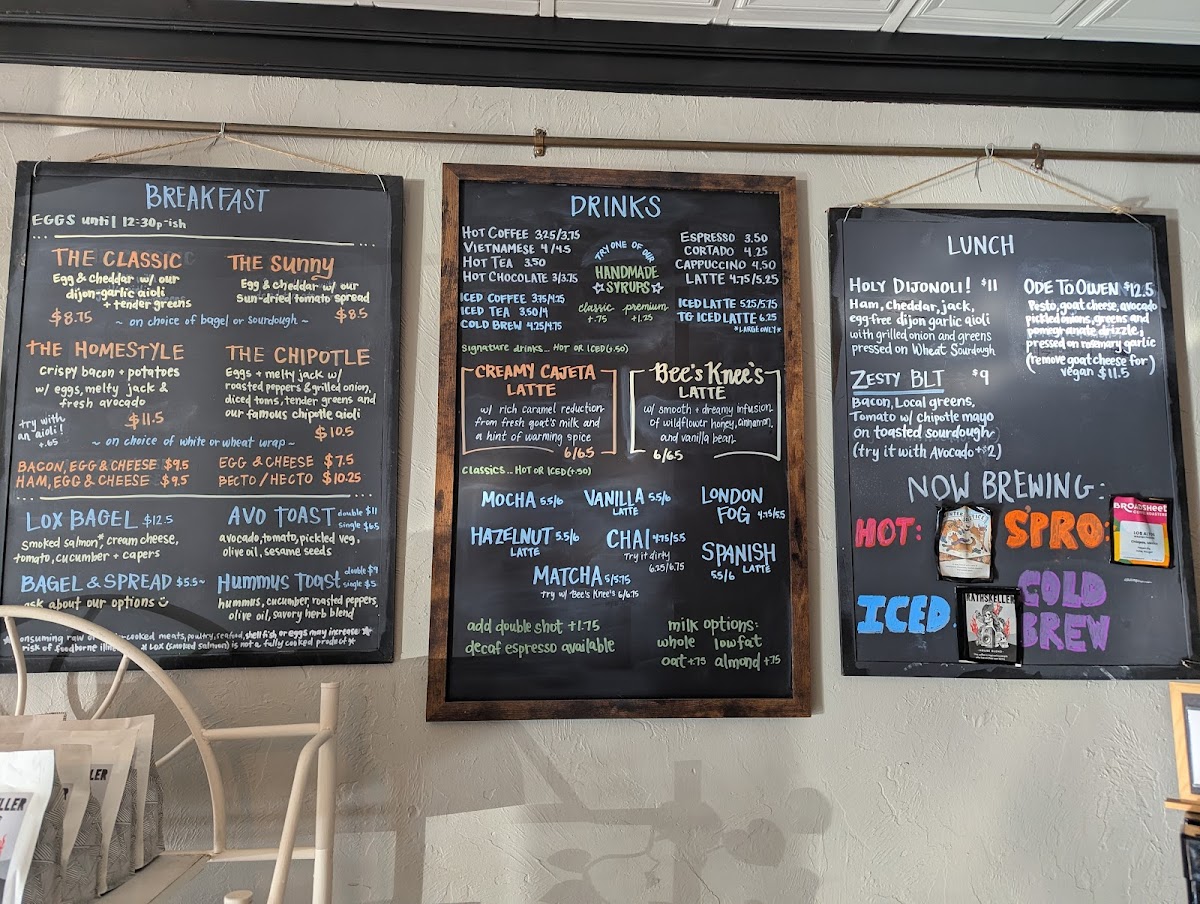 BREAKFAST
EGGS until 12:30p-ish
THE CLASSIC
Egg & cheddar w/ our
dijon-garlic aioli
+ tender greens
$8.75
THE SUNNY
Egg & cheddar w/ our
Sun-dried tomato spread
$8.5
~ on choice of bagel or sourdough ~
THE HOMESTYLE
crispy bacon + potatoes
w/ eggs, melty jack &
fresh avocado
$11.5
try with
an aioli!
+.65
THE CHIPOTLE
Eggs + melty jack w/
roasted peppers & grilled onion,
diced toms, tender greens and
our famous chipotle aioli
$10.5
~ on choice of white or wheat wrap ~
BACON, EGG & CHEESE $9.5
HAM, EGG & CHEESE $9.5
EGG & CHEESE $7.5
BECTO/HECTO $10.25
LOX BAGEL $12.5
smoked salmon*, cream cheese,
tomato, cucumber + capers
AVO TOAST double $11
single $6.5
avocado, tomato, pickled veg,
olive oil, sesame seeds
BAGEL & SPREAD $5.5~
ask about our options
HUMMUS TOAST double $9
single $5
hummus, cucumber, roasted peppers,
olive oil, savory herb blend
meats, poultry, seafood, shellfish or eggs may increase
risk of foodborne LOX (smoked salmon) is not a fully cooked product*
DRINKS
HOT COFFEE 3.25/3.75
VIETNAMESE 4/4.5
HOT TEA 3.50
HOT CHOCOLATE 3/3.75
ICED COFFEE 3.75/4.25
ICED TEA 3.50/4
COLD BREW 4.25/4.75
TRY ONE OF OUR
HANDMADE
SYRUPS
classic premium
+.75 +1.25
ESPRESSO 3.50
CORTADO 4.25
CAPPUCCINO 4.50
LATTE 4.75/5.25
ICED LATTE 5.25/5.75
TG ICED LATTE 6.25
*LARGE ONLY*
signature drinks... HOT OR ICED (+.50)
CREAMY CAJETA
LATTE
w/ rich caramel reduction
from fresh goat's milk and
a hint of warming spice
6/6.5
Bee's Knee's
LATTE
w/ smooth + dreamy infusion
of wildflower honey, cinnamon,
and vanilla bean.
6/6.5
Classics... HOT OR ICED (+.50)
MOCHA 5.5/6
VANILLA 5.5/6
LATTE
LONDON
FOG 4.75/5.5
HAZELNUT 5.5/6
LATTE
CHAI 4.75/5.5
Try it dirty
6.25/6.75
SPANISH
5.5/6 LATTE
MATCHA 5/5.75
try w/ Bee's Knee's 6/6.75
add double shot +1.75
decaf espresso available
milk options:
whole lowfat
oat +.75 almond +.75
LUNCH
HOLY DIJONOLI! $11
Ham, cheddar, jack,
egg free dijon garlic aioli
with grilled onion and greens
pressed on Wheat Sourdough
ODE TO OWEN $12.5
Pesto, goat cheese, avocado
pickled onions, greens and
pomegranate drizzle,
pressed on rosemary garlic
(remove goat cheese for)
vegan $11.5
ZESTY BLT $9
Bacon, Local greens,
Tomato w/ Chipotle mayo
on toasted sourdough
(try it with Avocado +$2)
NOW BREWING:
HOT:
S'PRO:
BROADSHEET
ICED
RATHSKELLER
COLD
BREW
LLER
ELLER